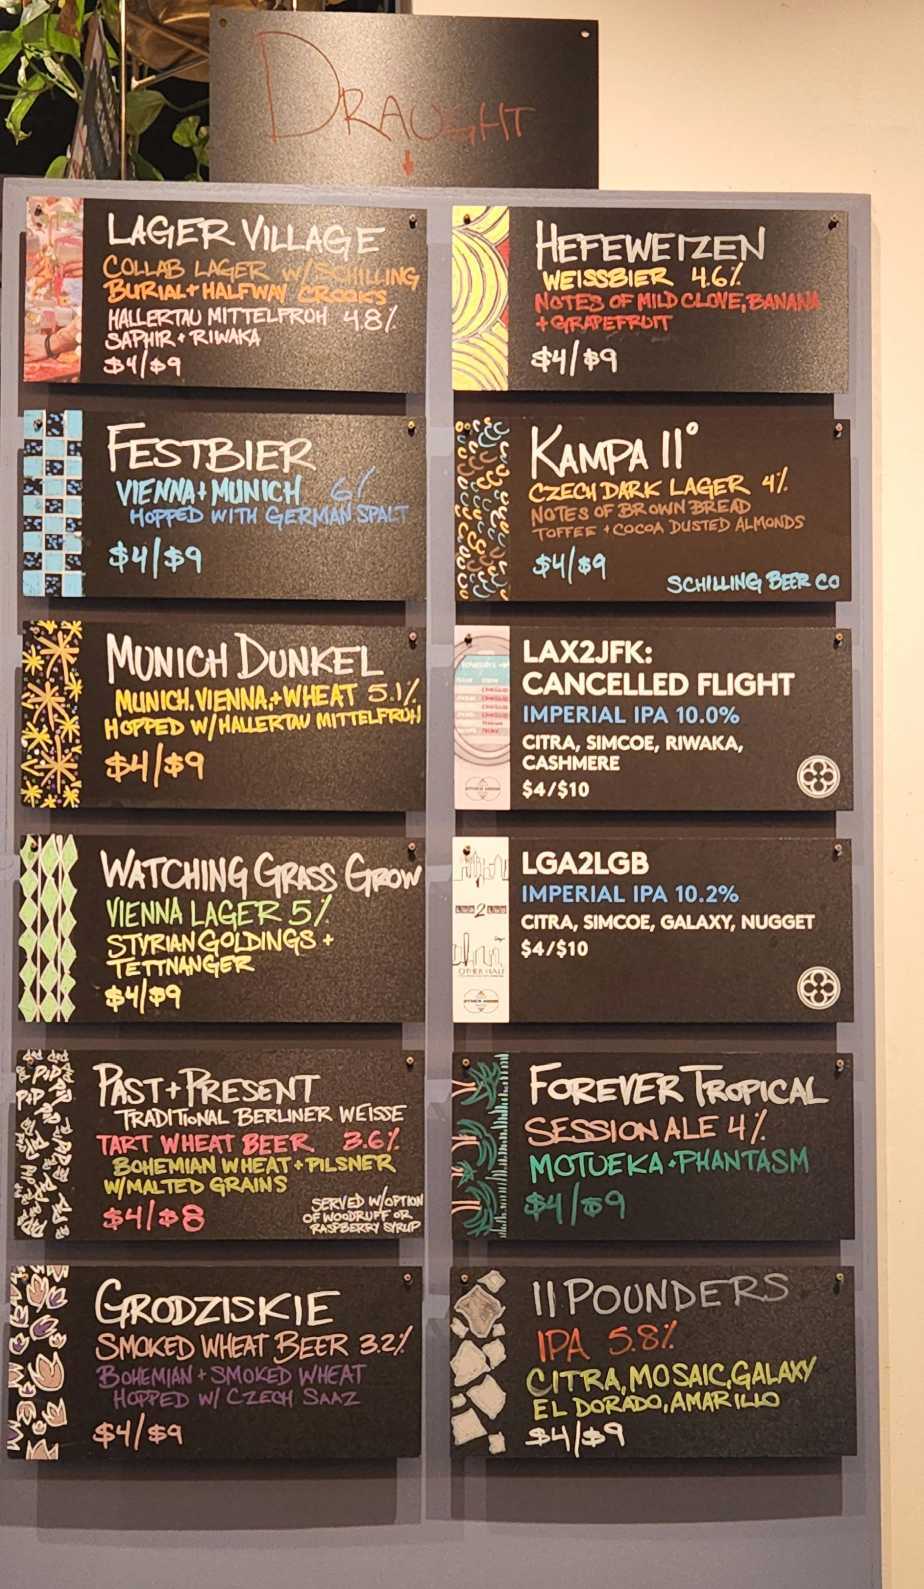 DRAUGHT
LAGER VILLAGE
COLLAB LAGER W/SCHILLING
BURIAL + HALFWAY CROOKS
HALLERTAU MITTELFROH 4.8%
SAPHIR + RIWAKA
$4/$9
FESTBIER
VIENNA + MUNICH 6%
HOPPED WITH GERMAN SPALT
$4/$9
MUNICH DUNKEL
MUNICH, VIENNA, + WHEAT 5.1%
HOPPED W/HALLERTAU MITTELFRUH
$4/$9
WATCHING GRASS GROW
VIENNA LAGER 5%
STYRIAN GOLDINGS +
TETTNANGER
$4/$9
PAST + PRESENT
TRADITIONAL BERLINER WEISSE
TART WHEAT BEER 3.6%
BOHEMIAN WHEAT + PILSNER
W/MALTED GRAINS
$4/$8
SERVED W/OPTION
OF WOODRUFF OR
RASPBERRY SYRUP
GRODZISKIE
SMOKED WHEAT BEER 3.2%
BOHEMIAN + SMOKED WHEAT
HOPPED W/ CZECH SAAZ
$4/$9
HEFEWEIZEN
WEISSBIER 4.6%
NOTES OF MILD CLOVE, BANANA
+ GRAPEFRUIT
$4/$9
KAMPA 11°
CZECH DARK LAGER 4%
NOTES OF BROWN BREAD
TOFFEE + COCOA DUSTED ALMONDS
$4/$9
SCHILLING BEER CO
LAX2JFK:
CANCELLED FLIGHT
IMPERIAL IPA 10.0%
CITRA, SIMCOE, RIWAKA,
CASHMERE
$4/$10
LGA2LGB
IMPERIAL IPA 10.2%
CITRA, SIMCOE, GALAXY, NUGGET
$4/$10
2
OTHER HALF
FOREVER TROPICAL
SESSION ALE 4%
MOTUEKA + PHANTASM
$4/$9
11 POUNDERS
IPA 5.8%
CITRA, MOSAIC, GALAXY
EL DORADO, AMARILLO
$4/$9